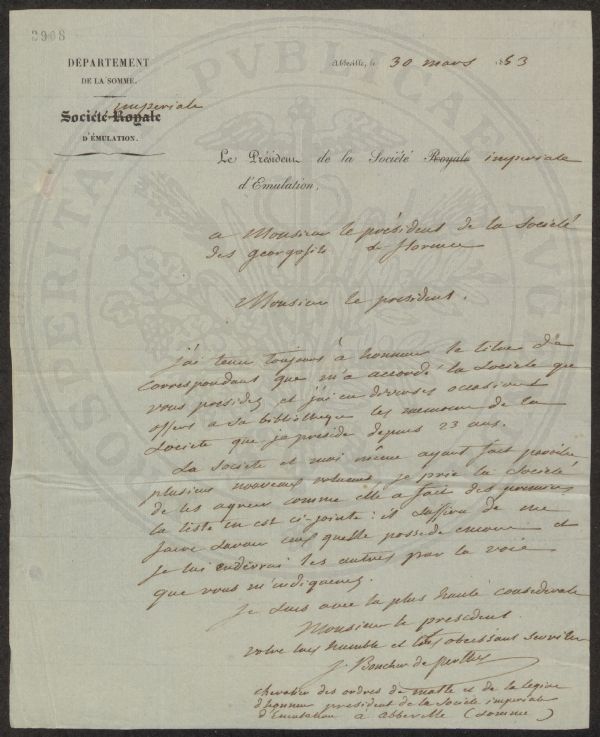 2908
DÉPARTEMENT
DE LA SOMME.
imperiale
Société Royale
D'ÉMULATION.
Abbeville, le 30 mars 1853
Le Président de la Société Royale imperiale
d'Emulation,
a Monsieur le président de la Société
des georgofili de florence
Monsieur le president.
j'ai tenu toujours à honneur le titre de
correspondant que m'a accordé la Societé que
vous presidez et j'ai en diverses occasions
offert a sa bibliotheque les memoires de la
Societé que je preside depuis 23 ans.
La Societe et moi même ayant fait paroitre
plusieurs nouveaux volumes, je prie la Société
de les agreer comme elle a fait des premiers
la liste en est ci-jointe: il suffira de me
faire savoir ceux quelle possede encore et
je lui enverrai les autres par la voie
que vous m'indiquerez.
Je suis avec la plus haute consideration
Monsieur le president
votre tres humble et tres obeissant serviteur
J. Boucher de perthes
chevalier des ordres de malte et de la legion
d'honneur president de la Societe imperiale
d'Emulation à abbeville (Somme)
PROSPERITATI PVBLICAE AVG